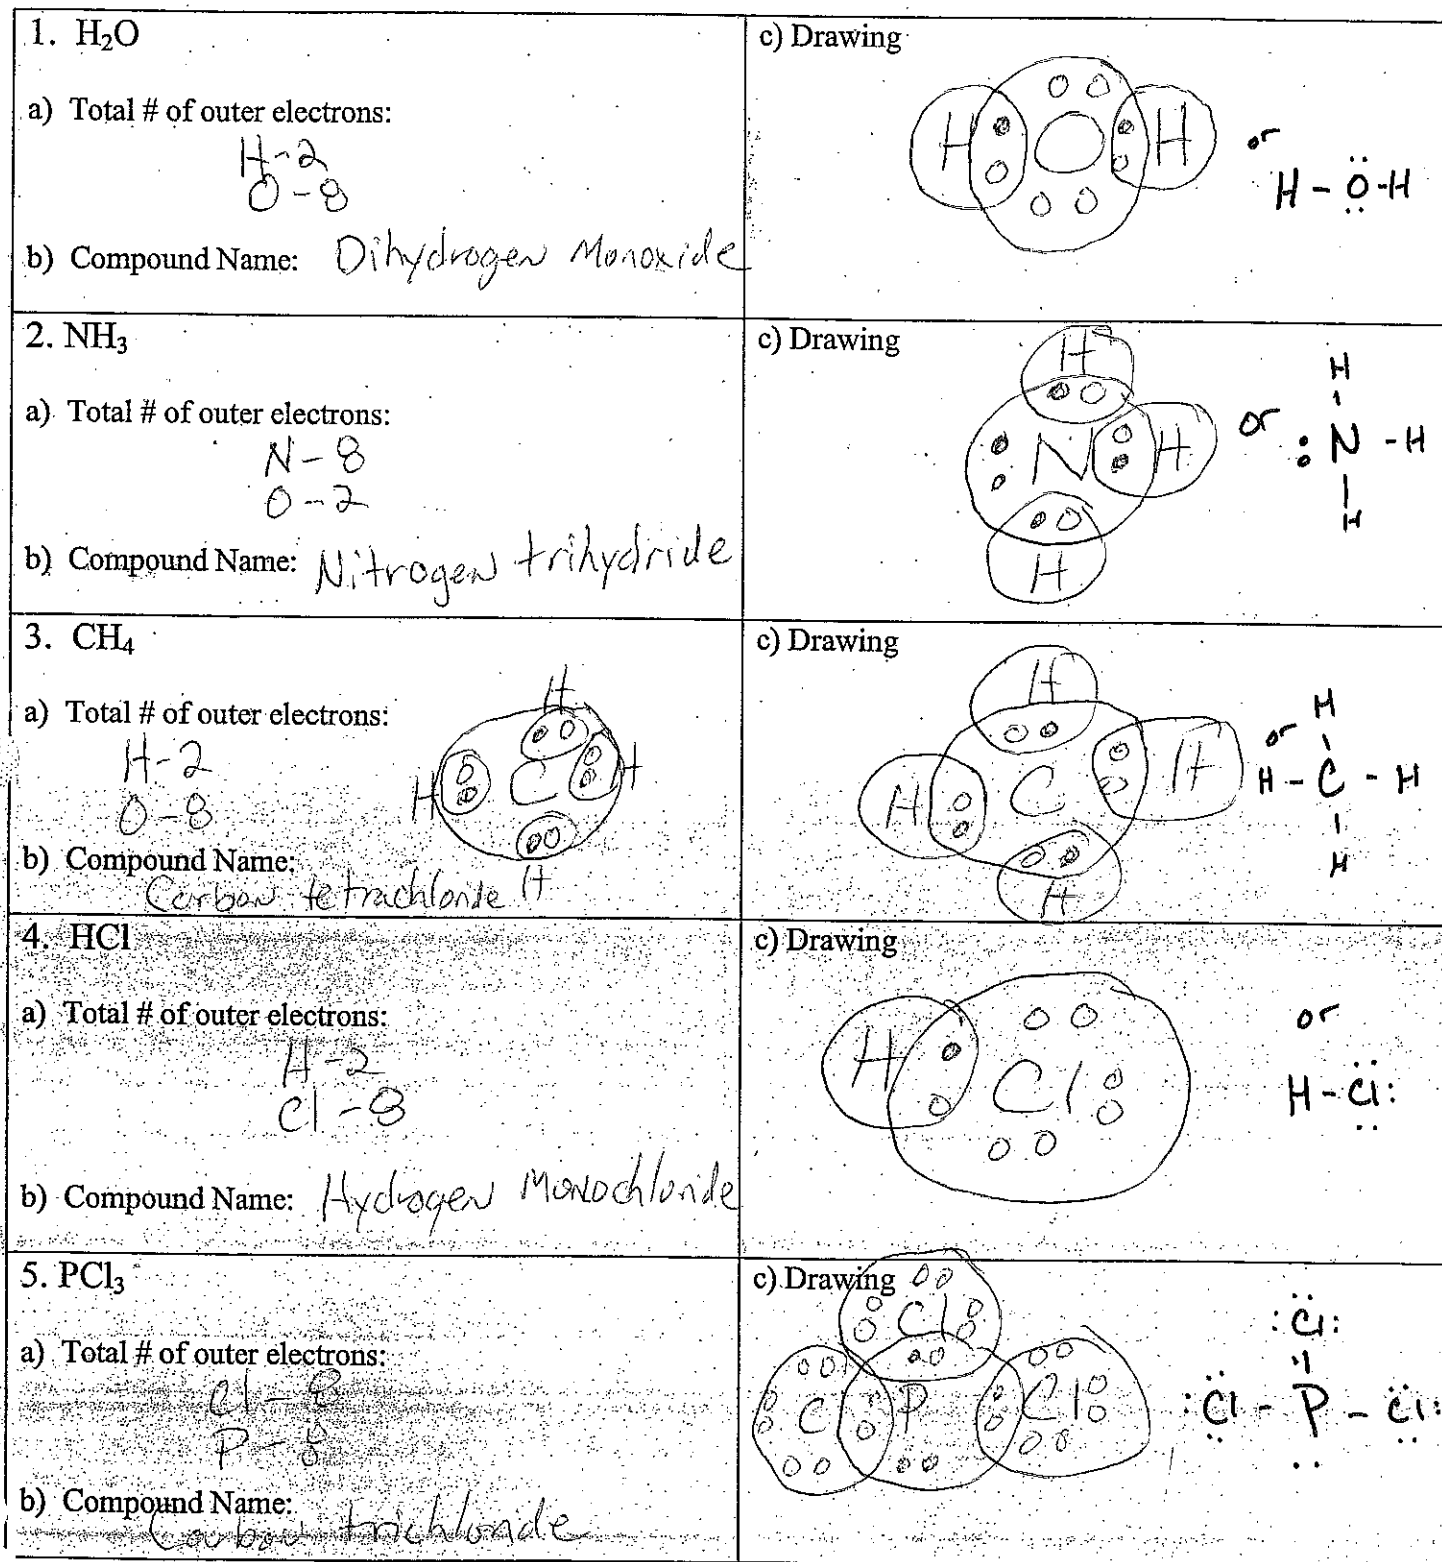 1. H₂O
a) Total # of outer electrons:
H-2
O-8
b) Compound Name: Dihydrogen Monoxide
c) Drawing
H H
or
H - Ö - H
2. NH₃
a) Total # of outer electrons:
N-8
O-2
b) Compound Name: Nitrogen trihydride
c) Drawing
H
N H
H
or
H
: N - H
H
3. CH₄
a) Total # of outer electrons:
H-2
O-8
H
H C H
H
b) Compound Name:
Carbon tetrachloride
c) Drawing
H
H C H
H
or
H
H - C - H
H
4. HCl
a) Total # of outer electrons:
H-2
Cl-8
b) Compound Name: Hydrogen Monochloride
c) Drawing
H Cl
or
H - Cl:
5. PCl₃
a) Total # of outer electrons:
Cl-8
P-8
b) Compound Name:
Carbon trichloride
c) Drawing
Cl
Cl P Cl
:Cl:
:Cl - P - Cl: